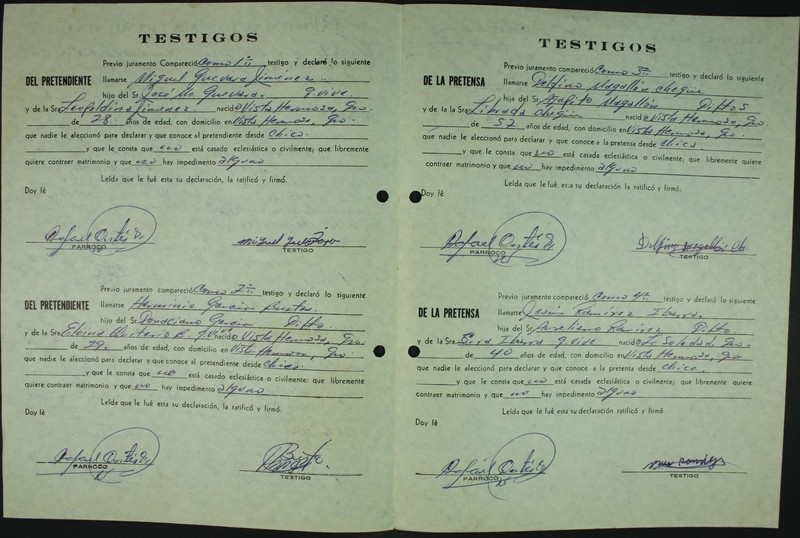 TESTIGOS
Previo juramento compareció Como 1er testigo y declaró lo siguiente
DEL PRETENDIENTE llamarse Miguel Guevara Jimenez
hijo del Sr. José Ma Guevara. q. vive.
y de la Sra. Leopoldina Jimenez nacido Vista Hermosa, Gro.
de 28. años de edad, con domicilio en Vista Hermosa, Gro.
que nadie le aleccionó para declarar y que conoce al pretendiente desde Chico.
y que le consta que no está casado eclesiástica o civilmente; que libremente
quiere contraer matrimonio y que no hay impedimento alguno
Leída que le fué esta su declaración, la ratificó y firmó.
Doy fé
Rafael Cortés
PARROCO
Miguel
TESTIGO
Previo juramento compareció Como 2o testigo y declaró lo siguiente
DEL PRETENDIENTE llamarse Herminio Garcia
hijo del Sr. Ponciano Garcia Difto
y de la Sra. q. vive nacido Vista Hermosa, Gro.
de 29. años de edad, con domicilio en Vista Hermosa, Gro.
que nadie le aleccionó para declarar y que conoce al pretendiente desde Chico.
y que le consta que no está casado eclesiástica o civilmente: que libremente
quiere contraer matrimonio y que no hay impedimento alguno
Leída que le fué esta su declaración, la ratificó y firmó.
Doy fé
Rafael Cortés
PARROCO
TESTIGO
TESTIGOS
Previo juramento compareció Como 3er testigo y declaró lo siguiente
DE LA PRETENSA llamarse Delfino Magallón
hijo del Sr. Magallón Diftos
y de la Sra. Librada nacido Vista Hermosa, Gro.
de 52 años de edad, con domicilio en Vista Hermosa, Gro.
que nadie le aleccionó para declarar y que conoce a la pretensa desde Chica.
y que le consta que no está casada eclesiástica o civilmente; que libremente quiere
contraer matrimonio y que no hay impedimento alguno
Leída que le fué esta su declaración, la ratificó y firmó.
Doy fé
Rafael Cortés
PARROCO
Delfino Magallón
TESTIGO
Previo juramento compareció Como 4o testigo y declaró lo siguiente
DE LA PRETENSA llamarse Jesús Ramirez Ibarra.
hijo del Sr. Aureliano Ramirez Difto
y de la Sra. Ibarra q. vive nacido La Soledad, Gro.
de 40 años de edad, con domicilio en Vista Hermosa, Gro
que nadie le aleccionó para declarar y que conoce a la pretensa desde Chica.
y que le consta que no está casada eclesiástica o civilmente; que libremente quiere
contraer matrimonio y que no hay impedimento alguno
Leída que le fué esta su declaración la ratificó y firmó.
Doy fé
Rafael Cortés
PARROCO
TESTIGO